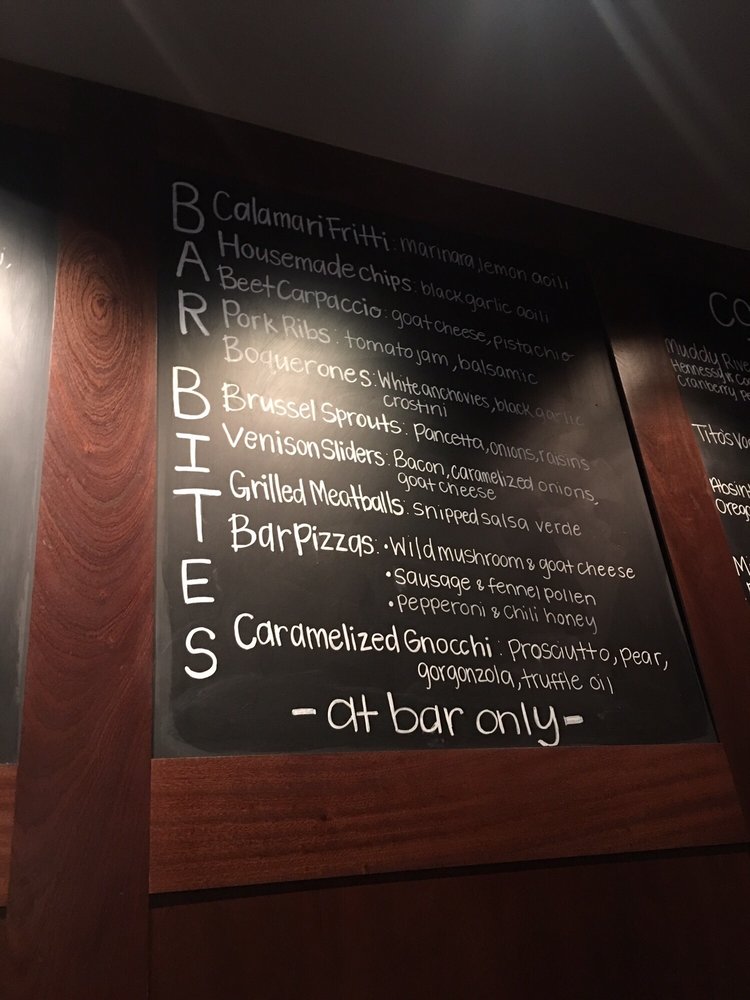 BAR BITES
Calamari Fritti: marinara, lemon aoili
Housemade chips: black garlic aoili
Beet Carpaccio: goat cheese, pistachio
Pork Ribs: tomato jam, balsamic
Boquerones: White anchovies, black garlic
crostini
Brussel Sprouts: Pancetta, onions, raisins
Venison Sliders: Bacon, caramelized onions,
goat cheese
Grilled Meatballs: snipped salsa verde
Bar Pizzas: •Wild mushroom & goat cheese
•Sausage & fennel pollen
•Pepperoni & Chili honey
Caramelized Gnocchi: Prosciutto, pear,
gorgonzola, truffle oil
-at bar only-
CO
Muddy Rive
Hennessy
Cranberry
Tito's Vo
Absint
Orego
M